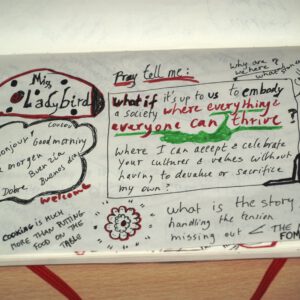 Miss
Ladybird
Coucou
Bonjour! Good morning
morgen
Buen zia
Buenos dia
Dobre
welcome
COOKING IS MUCH
MORE THAN PUTTING
FOOD ON THE
TABLE
Pray tell me:
what if it's up to us to embody
a society where everything &
everyone can thrive?
where I can accept & celebrate
your cultures & values without
having to devalue or sacrifice
my own?
why are
we here?
what is the story
handling the tension
missing out < THE
FOM